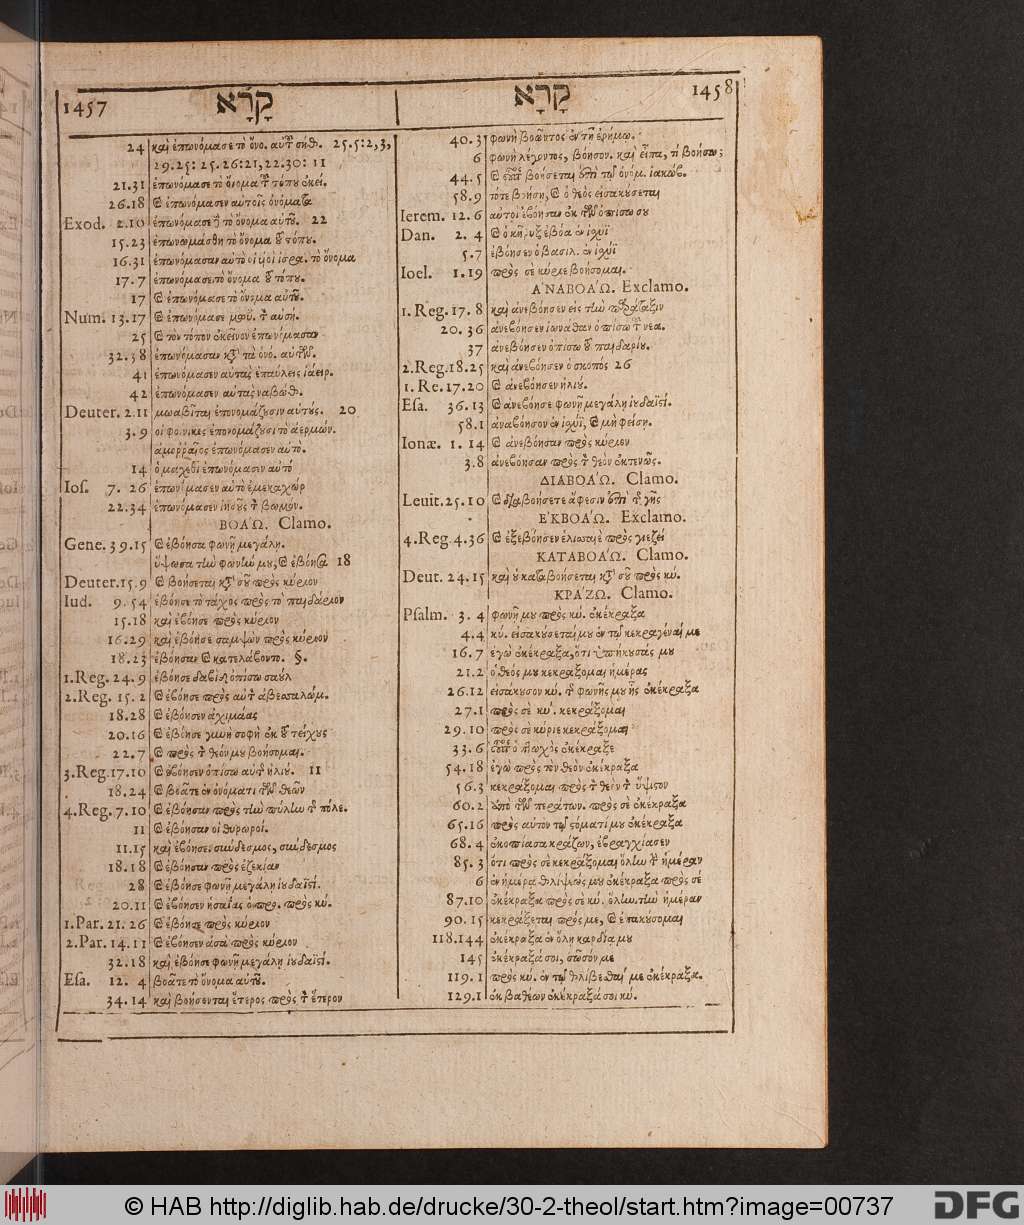 1457 קָרָא
24 καὶ ἐπωνόμασε τὸ ὄνο. αὐτ͂ σήθ. 25.5:2,3,
29.25: 25.26:21,22.30: 11
21.31 ἐπωνόμασε τὸ ὄνομα τ͂ τόπυ ἐκεί.
26.18 & ἐπωνόμασεν αὐτοῖς ὀνόματα
Exod. 2.10 ἐπωνόμασε ἢ τὸ ὄνομα αὐτȣ͂. 22
15.23 ἐπωνωμάσθη τὸ ὄνομα ȣ͂ τόπυ.
16.31 ἐπωνόμασαν αὐτὸ οἱ ὑοὶ ἰσρα. τὸ ὄνομα
17.7 ἐπωνόμασε τὸ ὄνομα ȣ͂ τόπυ.
17 & ἐπωνόμασε τὸ ὄνομα αὐτȣ͂.
Num. 13.17 & ἐπωνόμασε μωϋ. τ̀ αὐσῆ.
25 & τὸν τόπον ἐκεῖνον ἐπωνόμασαν
32.38 ἐπωνόμασαν κ̀ τὰ ὀνό. αὐτῶν.
41 ἐπωνόμασεν αὐτὰς ἐπαύλεις ἰάειρ.
42 ἐπωνόμασεν αὐτὰς ναβώθ.
Deuter. 2.11 μωαβῖται ἐπονομάζȣσιν αὐτȣ́ς. 20
3.9 οἱ φοίνικες ἐπονομάζȣσι τὸ ἀερμών.
ἀμοῤῥαῖος ἐπωνόμασεν αὐτὸ.
14 ὁ μαχεθὶ ἐπωνόμασεν αὐτὸ
Ios. 7.26 ἐπωνόμασεν αὐτὸ ἐμεκαχὼρ
22.34 ἐπωνόμασεν ἰησȣ͂ς τ̀ βωμὸν.
ΒΟΑΏ. Clamo.
Gene. 39.15 & ἐβόησα φωνῇ μεγάλῃ.
ὕψωσα τὴν φωνήν μȣ, & ἐβόησα 18
Deuter. 15.9 & βοήσεται κ̀ σȣ͂ πρὸς κύριον
Iud. 9.54 ἐβόησε τὸ τάχος πρὸς τὸ παιδάριον
15.18 καὶ ἐβόησε πρὸς κύριον
16.29 καὶ ἐβόησε σαμψὼν πρὸς κύριον
18.23 ἐβόησαν & κατελάβοντο. §.
1.Reg. 24.9 ἐβόησε δαβὶδ ὀπίσω σαȣ̀λ
2.Reg. 15.2 & ἐβόησε πρὸς αὐτ̀ ἀβεσσαλώμ.
18.28 & ἐβόησεν ἀχιμάας
20.16 & ἐβόησε γυνὴ σοφὴ ἐκ ȣ͂ τείχȣς
22.7 & πρὸς τ̀ θεόν μȣ βοήσομαι.
3.Reg. 17.10 & ἐβόησεν ὀπίσω αὐτῆ ἠλιȣ́. 11
18.24 & βοᾶτε ἐν ὀνόματι τῶν θεῶν
4.Reg. 7.10 & ἐβόησαν πρὸς τὴν πύλην τ̂ πόλε.
11 & ἐβόησαν οἱ θυρωροί.
11.15 καὶ ἐβόησε, σύνδεσμος, σύνδεσμος
18.18 & ἐβόησαν πρὸς ἐζεκίαν
28 & ἐβόησε φωνῇ μεγάλῃ ἰȣδαϊστί.
20.11 & ἐβόησεν ἡσαΐας ὁ προ. πρὸς κύ.
1.Par. 21.26 & ἐβόησε πρὸς κύριον
2.Par. 14.11 & ἐβόησεν ἀσὰ πρὸς κύριον
32.18 καὶ ἐβόησε φωνῇ μεγάλῃ ἰȣδαϊστί.
Esa. 12.4 βοᾶτε τὸ ὄνομα αὐτȣ͂.
34.14 καὶ βοήσονται ἕτερος πρὸς τ̀ ἕτερον
קָרָא 1458
40.3 φωνὴ βοῶντος ἐν τῇ ἐρήμω.
6 φωνὴ λέγοντος, βόησον. καὶ εἶπα, τί βοήσω;
44.5 & ȣ͂τος βοήσεται ἐπὶ τῷ ὀνόμ. ἰακώβ.
58.9 τότε βοήσῃ, & ὁ θεὸς εἰσακȣ́σεται
Ierem. 12.6 αὐτοὶ ἐβόησαν ἐκ τῶν ὀπίσω σȣ
Dan. 2.4 & ὁ κῆρυξ ἐβόα ἐν ἰσχύϊ
5.7 ἐβόησεν ὁ βασιλ. ἐν ἰσχύϊ
Ioel. 1.19 πρὸς σὲ κύριε βοήσομαι.
ΑΝΑΒΟΑΏ. Exclamo.
1.Reg. 17.8 καὶ ἀνεβόησεν εἰς τὴν παράταξιν
20.36 ἀνεβόησεν ἰωναθαν ὀπίσω τ͂ νεα.
37 ἀνεβόησεν ὀπίσω ȣ͂ παιδαρίȣ.
2.Reg. 18.25 καὶ ἀνεβόησεν ὁ σκοπός 26
1.Re. 17.20 & ἀνεβόησεν ἠλιȣ.
Esa. 36.13 & ἀνεβόησε φωνῇ μεγάλῃ ἰȣδαϊστί.
58.1 ἀναβόησον ἐν ἰσχύϊ, & μὴ φείσῃ.
Ionæ. 1.14 & ἀνεβόησαν πρὸς κύριον
3.8 ἀνεβόησαν πρὸς τ̀ θεὸν ἐκτενῶς.
ΔΙΑΒΟΑΏ. Clamo.
Leuit. 25.10 & διαβοήσετε ἄφεσιν ἐπὶ τ̂ γῆς
ἘΚΒΟΑΏ. Exclamo.
4.Reg. 4.36 & ἐξεβόησεν ἑλισσαιὲ πρὸς γιεζεί
ΚΑΤΑΒΟΑΏ. Clamo.
Deut. 24.15 καὶ ȣ̓ καταβοήσεται κ̀ σȣ͂ πρὸς κύ.
ΚΡΑΖΩ. Clamo.
Psalm. 3.4 φωνῇ μȣ πρὸς κύ. ἐκέκραξα
4.4 κύ. εἰσακȣ́σεταί μȣ ἐν τῷ κεκραγέναι με
16.7 ἐγὼ ἐκέκραξα, ὅτι ἐπήκȣσάς μȣ
21.2 ὁ θεός μȣ κεκράξομαι ἡμέρας
26.12 εἰσάκȣσον κύ. τ̂ φωνῆς μȣ ἧς ἐκέκραξα
27.1 πρὸς σὲ κύ. κεκράξομαι
29.10 πρὸς σὲ κύριε κεκράξομαι
33.6 ȣ͂τος ὁ πτωχὸς ἐκέκραξε
54.18 ἐγὼ πρὸς τὸν θεὸν ἐκέκραξα
56.3 κεκράξομαι πρὸς τ̀ θεὸν τ̀ ὕψιστον
60.2 ἀπὸ τῶν περάτων. πρὸς σὲ ἐκέκραξα
65.16 πρὸς αὐτὸν τῷ στόματί μȣ ἐκέκραξα
68.4 ἐκοπίασα κράζων, ἐβραγχίασεν
85.3 ὅτι πρὸς σὲ κεκράξομαι ὅλην τ̀ ἡμέραν
6 ἐν ἡμέρᾳ θλίψεώς μȣ ἐκέκραξα πρὸς σὲ
87.10 ἐκέκραξα πρὸς σὲ κύ. ὅλην τὴν ἡμέραν
90.15 κεκράξεται πρός με, & ἐπακȣ́σομαι
118.144 ἐκέκραξα ἐν ὅλῃ καρδίᾳ μȣ
145 ἐκέκραξά σοι, σῶσόν με
119.1 πρὸς κύ. ἐν τῷ θλίβεσθαί με ἐκέκραξα.
129.1 ἐκ βαθέων ἐκέκραξά σοι κύ.
© HAB http://diglib.hab.de/drucke/30-2-theol/start.htm?image=00737
DFG